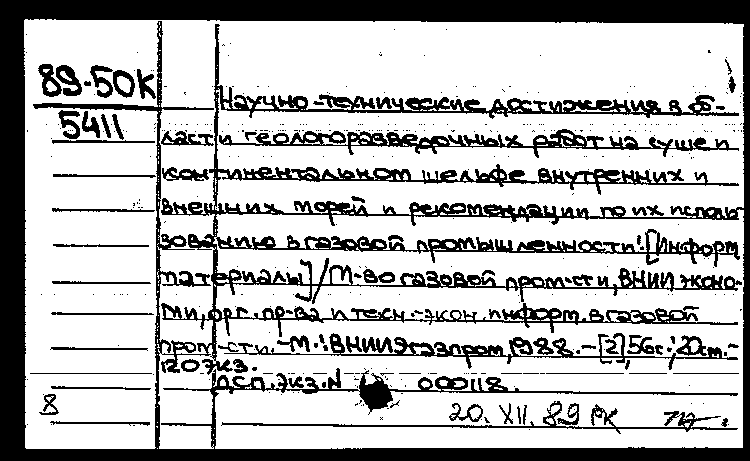 89-50К
5411
Научно-технические достижения в об-
ласти геологоразведочных работ на суше и
континентальном шельфе внутренних и
внешних морей и рекомендации по их исполь
зованию в газовой промышленности: [Информ
материалы] / М-во газовой пром-сти, ВНИИ эконо-
ми, орг. пр-ва и техн.-экон. информ. в газовой
пром-сти. - М.: ВНИИЭгазпром, 1988. - [2], 56 с.; 20 см. -
120 экз.
ДСП. Экз. N 000118.
8
20. XII. 89 РК